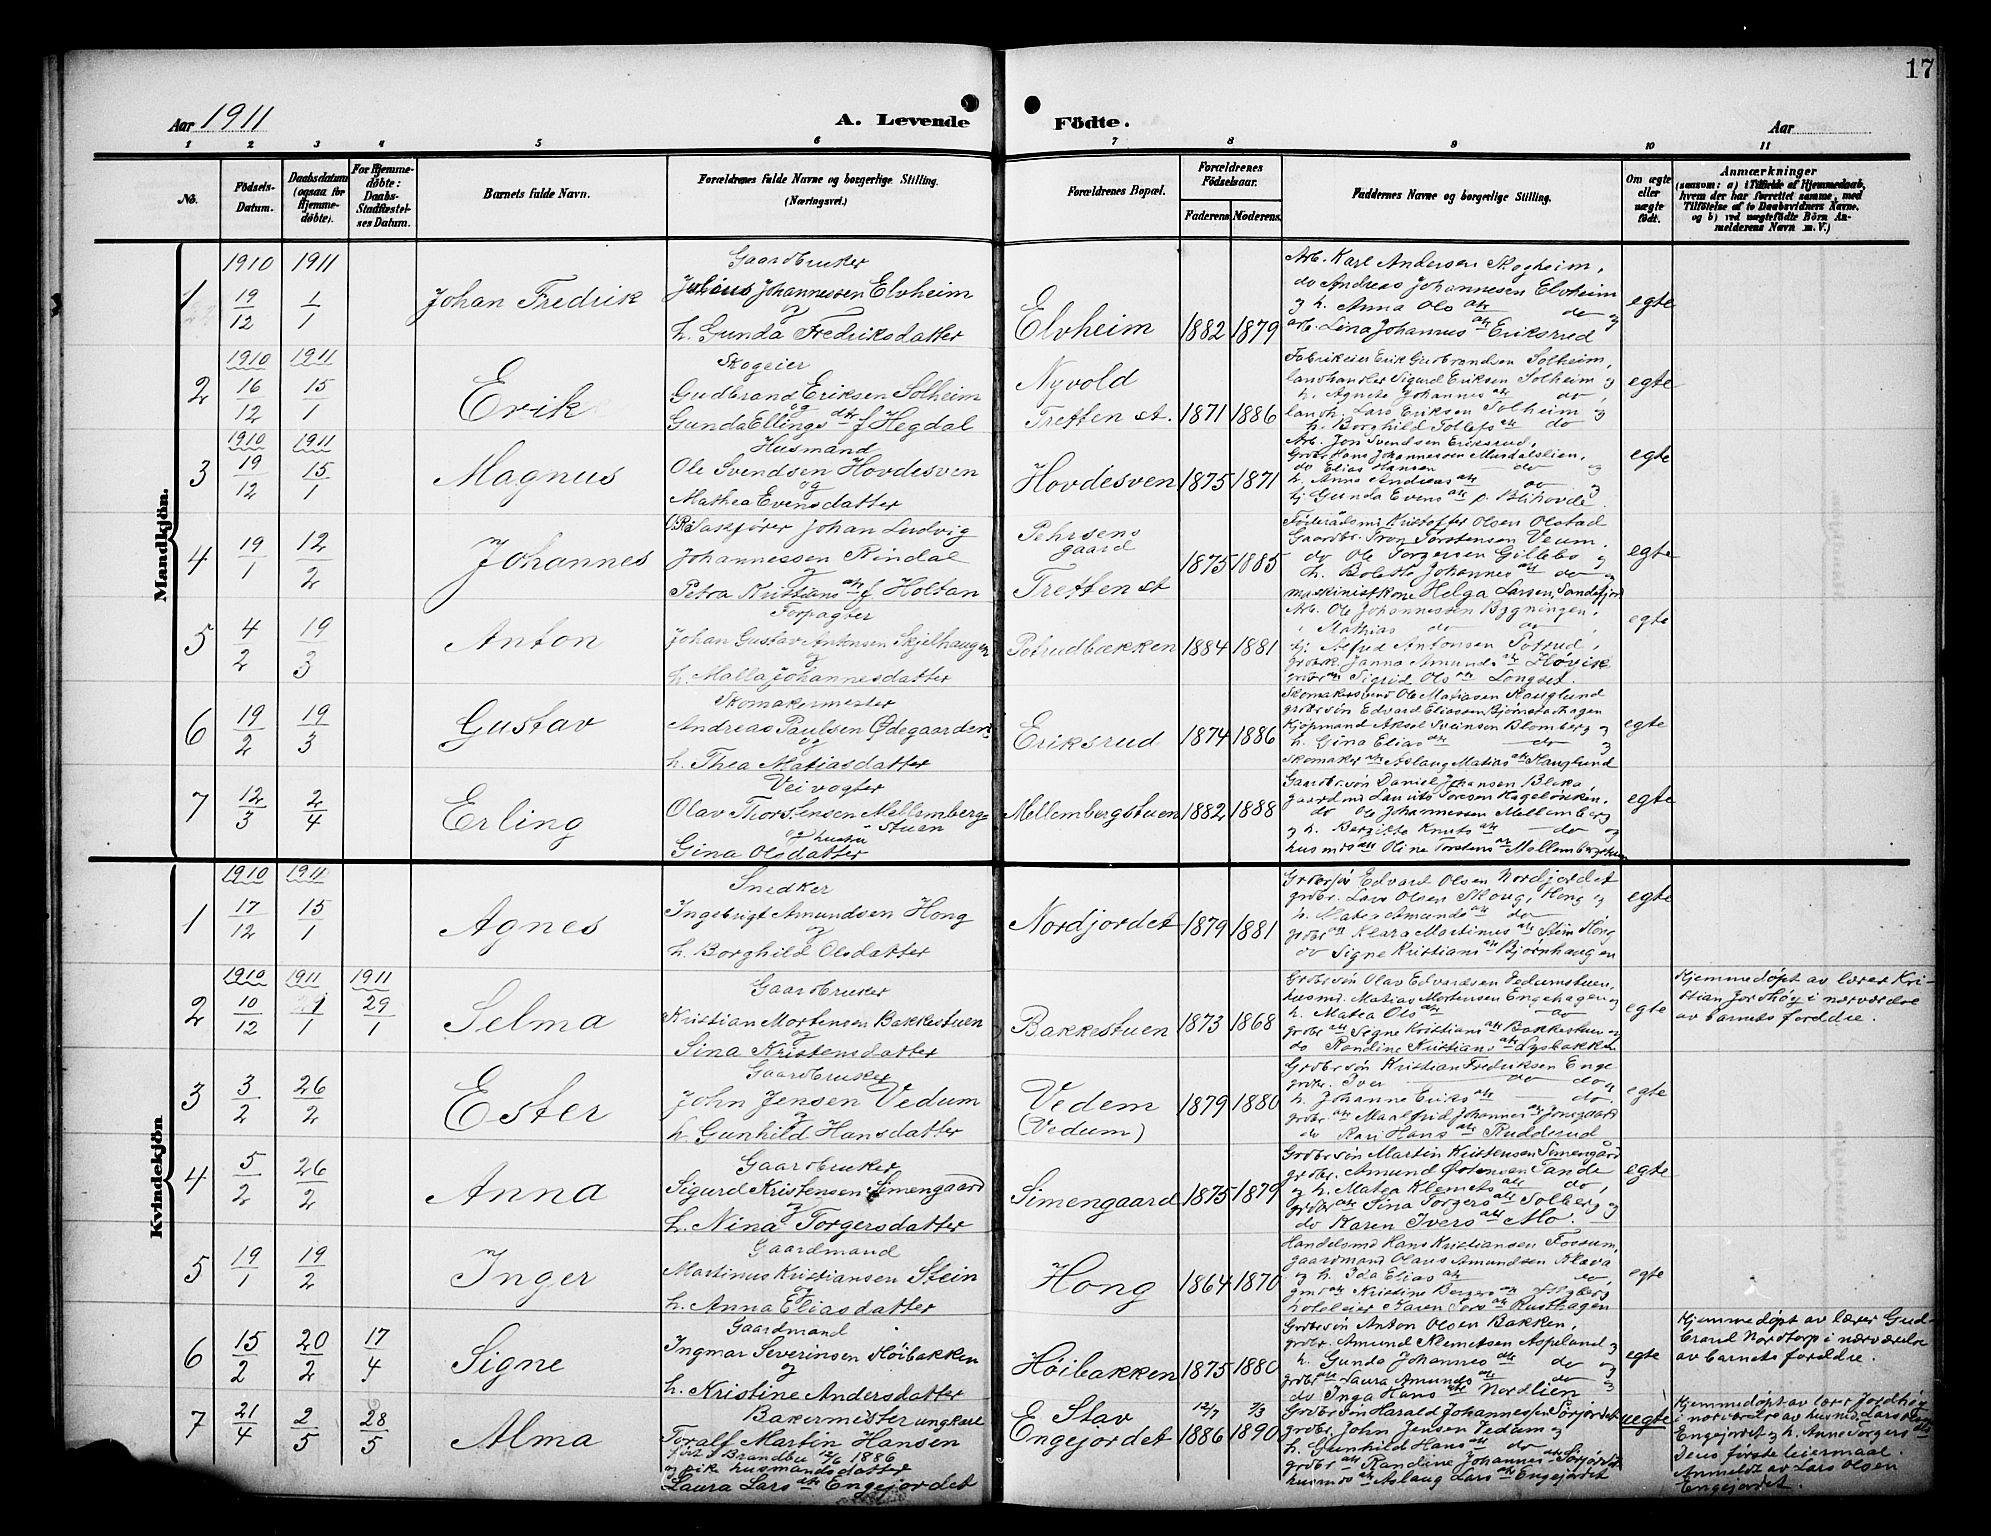 17
Aar 1911
A. Levende Födte.
Aar
1 2 3 4 5 6 7 8 9 10 11
No.
Födsels-Datum.
Daabsdatum (ogsaa for Hjemme-døbte).
For Hjemme-døbte: Daabs-Stadfæstel-ses Datum.
Barnets fulde Navn.
Forældrenes fulde Navne og borgerlige Stilling. (Næringsvei.)
Forældrenes Bopæl.
Forældrenes Födselsaar.
Faderens. Moderens.
Faddernes Navne og borgerlige Stilling.
Om ægte eller uægte födt.
Anmærkninger
(saasom: a) i Tilfælde af Hjemmedaab, hvem der har forrettet samme, med Tilföielse af to Daabsvidners Navne, og b) ved uægtefödte Börn An-melderens Navn m. V.)
Mandkjön.
1
1910 19/12
1911 1/1
Johan Fredrik
Gaardbruker
Julius Johannessen Elvheim
og
h. Gunda Fredriksdatter
Elvheim
1882 1879
Arb. Karl Andersen Skogheim,
do Andreas Johannesen Elvheim
og h. Anna Ols dtr do og
arb. Lina Johannes dtr Eriksrud
egte
2
1910 16/12
1911 15/1
Erik
Skogeier
Gudbrand Eriksen Solheim
og
Gunda Ellings dtr f. Hegdal
Nyvold
Tretten st.
1871 1886
Fabrikeier Erik Gudbrandsen Solheim,
landhandler Sigurd Eriksen Solheim og
h. Agnete Johannes dtr do,
landh. Lars Eriksen Solheim og
h. Borghild Tollefs dtr do
egte
3
1910 19/12
1911 15/1
Magnus
Husmand
Ole Svendsen Hovdesven
og
Mathea Evensdatter
Hovdesven
1875 1871
Arb. Jon Svendsen Eriksrud,
Grdbr Hans Johannessen Musdalslien,
do Elias Hansen do og
h. Anne Andreas dtr do og
tj. Gunda Evens dtr p. Blihovde
egte
4
19/1
12/2
Johannes
Johan Ludvig
Johannessen Rindal
og
Petra Kristians dtr f. Holtan
Pehrsens gaard
Tretten st
1875 1885
Føderaadsmd Kristoffer Olsen Olstad
Gaardbr. Tron Torstensen Veum.
do Ole Torgersen Gillebo og
h. Bolette Johannes dtr do og
maskinistkone Helga Larsen, Sandefjord
egte
5
4/2
19/3
Anton
Forpagter
Johan Gustav Antonsen Skjelhaugen
og
h. Malla Johannesdatter
Potrudbakken
1884 1881
Arb. Ole Johannessen Bygningen,
Mathias do do,
tj. Alfred Antonsen Potrud,
Janna Amunds dtr Høvik
Sigrid Ols dtr Longset.
egte
6
19/2
19/3
Gustav
Skomakermester
Andreas Paulsen Ødegaarden
og
h. Thea Matiasdatter
Eriksrud
1874 1886
Skomakersvend Ole Matiasen Hauglund
grdbrsøn Edvard Eliassen Bjørnstadhagen
Kjøpmand Aksel Sveinsen Blomberg og
h. Gina Elias dtr do og
skomaker dtr Aslaug Matias dtr Hauglund
egte
7
12/3
2/4
Erling
Veivogter
Olav Thorstensen Mellemberg-
stuen
og hustru
Gina Olsdatter
Mellembergstuen
1882 1888
Gaardbr.søn Daniel Johansen Bleka,
gaardmd Lauits Toresen Hageløkken.
do Ole Johannessen Mellemberg
og h. Bergitte Knuts dtr do og
husmds dtr Oline Torstens dtr Mellembergstuen
egte
Kvindekjön
1
1910 17/12
1911 15/1
Agnes
Snedker
Ingebrigt Amundsen Hong
og
h. Borghild Olsdatter
Nordjordet
1879 1881
Grdbrsøn Edvard Olsen Nordjordet
grdbr. Lars Olsen Skoug, Hong og
h. Matea Amunds dtr do
grdbr dtr Klara Martinus dtr Stein Hong
do Signe Kristians dtr Bjørnhaugen
egte
2
1910 10/12
1911 21/1
1911 29/1
Selma
Gaardbruker
Kristian Mortensen Bakkestuen
og
Sina Kristensdatter
Bakkestuen
1873 1868
Grdbrsøn Olav Edvardsen Vedumstuen,
husmd. Matias Mortensen Engehagen og
h. Matea Ols dtr do
grdbr dtr Signe Kristians dtr Bakkestuen og
do Randine Kristians dtr Lysbakken
egte
Hjemmedøpt av lærer Kri-
stian Jordhøy i nærværelse
av barnets forældre.
3
3/2
26/2
Ester
Gaardbruker
John Jensen Vedum
og
h. Gunhild Hansdatter
Vedem
(Vedum)
1879 1880
Grdbrsøn Kristian Fredriksen Enge
grdbr. Iver do do og
h. Johanne Eriks dtr do.
grdbr dtr Maalfrid Johannes dtr Jonsgaard
do Kari Hans dtr Rudderud
egte
4
5/2
26/2
Anna
Gaardbruker
Sigurd Kristensen Simengaard
og
h. Nina Torgersdatter
Simengaard
1875 1879
Grdbrsøn Martin Kristensen Simengård
grdbr. Amund Østensen Tande
og h. Matea Klemets dtr do,
grdbr dtr Sina Torgers dtr Solberg og
do Karen Ivers dtr Mo.
egte
5
19/1
19/2
Inger
Gaardmand
Martinus Kristiansen Stein
og
h. Anna Eliasdatter
Hong
1864 1870
Handelsmd Hans Kristiansen Fossum,
gaardmand Olaus Amundsen Klæva
og h. Ida Elias dtr do,
Kristine Bergers dtr
hoteleier Karen Tors dtr Rusthagen
egte
6
15/2
20/2
17/4
Signe
Gaardmand
Ingmar Severinsen Høibakken
og
h. Kristine Andersdatter
Høibakken
1875 1880
Grdbrsøn Anton Olsen Bakken,
grdbr. Amund Klemetsen Aspelund og
h. Gunda Johannes dtr do og
grdbr dtr Laura Amunds dtr do og
do Inga Hans dtr Nordlien
egte
Hjemmedøpt av lærer Gud-
brand Nordtorp i nærværelse
av barnets forældre.
7
21/4
2/5
28/5
Alma
Bakermester ungkarl
Toralf Martin Hansen
født i Brandbu 12/6 1886
og pike husmandsdatter
Laura Lars dtr Engejordet
Stav
Engejordet
12/7 1886
7/3 1890
Grdbrsøn Harald Johannessen Sørjordet
grdbr. John Jensen Vedum og
h. Gunhild Hans dtr do
grdbr dtr Randine Johannes dtr Sørjordet
husmds dtr Aslaug Lars dtr Engejordet
uegte
Hjemmedøpt av lærer Jordhøy
i nærværelse av husmd. Lars Olsen
Engejordet og h. Anne Torgers dtr
Dens første leiermaal.
Anmeldt av Lars Olsen
Engejordet.